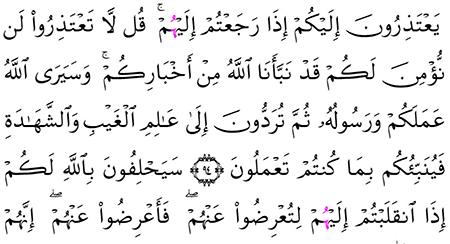 يَعْتَذِرُونَ إِلَيْكُمْ إِذَا رَجَعْتُمْ إِلَيْهُمْ ۚ قُل لَّا تَعْتَذِرُواْ لَن
نُّؤْمِنَ لَكُمْ قَدْ نَبَّأَنَا اللَّهُ مِنْ أَخْبَارِكُمْ ۚ وَسَيَرَى اللَّهُ
عَمَلَكُمْ وَرَسُولُهُۥ ثُمَّ تُرَدُّونَ إِلَىٰ عَالِمِ الْغَيْبِ وَالشَّهَادَةِ
فَيُنَبِّئُكُم بِمَا كُنتُمْ تَعْمَلُونَ ﴿٩٤﴾ سَيَحْلِفُونَ بِاللَّهِ لَكُمْ
إِذَا انقَلَبْتُمْ إِلَيْهُمْ لِتُعْرِضُواْ عَنْهُمْ ۖ فَأَعْرِضُواْ عَنْهُمْ ۖ إِنَّهُمْ